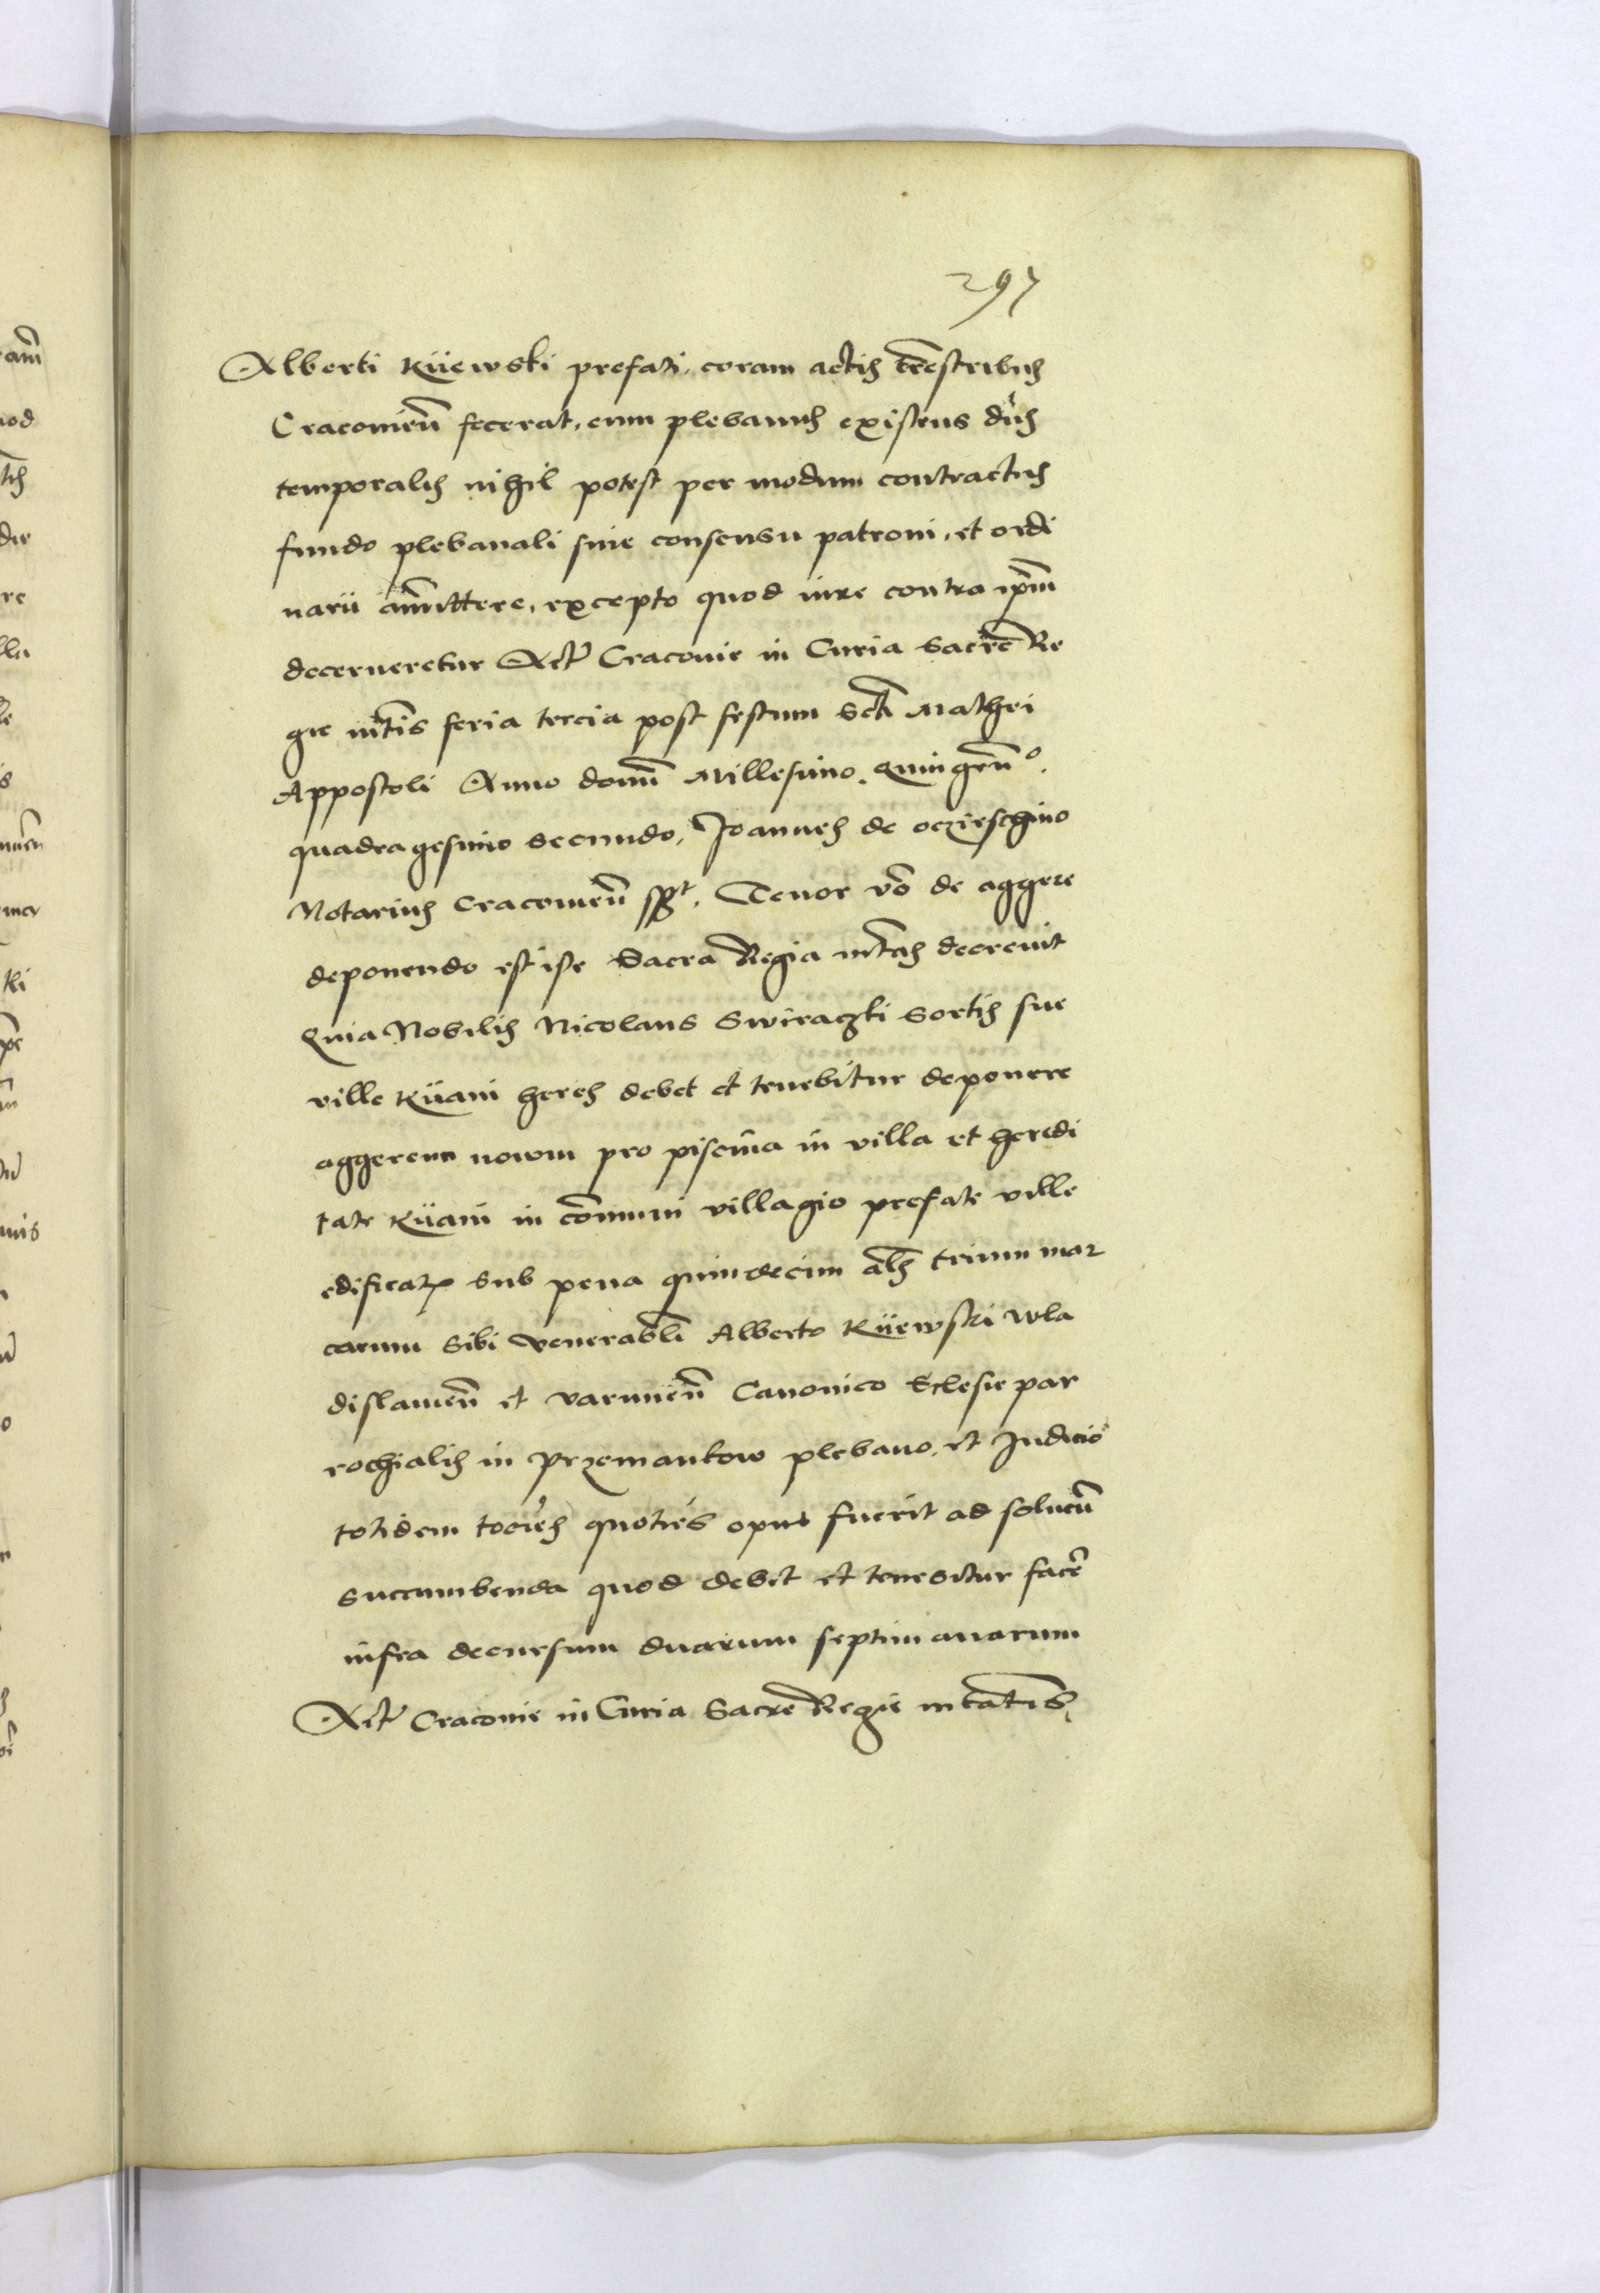 297
Alberti Kÿewski prefati, coram actis terrestribus
Cracovieñ fecerat, cum plebanus existens dñs
temporalis nihil potest per modum contractus
fundo plebanali sine consensu patroni, et ordi
narii am̃ittere, excepto quod iure contra ip̃m
decerneretur Act Cracovie in Curia Sacre Re
gie m̃tis feria tercia post festum Scti Mathei
Appostoli Anno domĩ Millesimo Quingeñº
quadragesimo secundo, Joannes de oczieschino
Notarius Cracovieñ sst, Tenor vō de aggere
deponendo est iste Sacra Regia m̃tas decrevit
Quia Nobilis Nicolaus Swiraczki sortis sue
ville Kÿani heres debet et tenebitur deponere
aggerem novum pro piscina in villa et heredi
tate Kÿani in cõmuni villagio prefate ville
edificat sub pena quindecim als trium mar
carum sibi venerabli Alberto Kÿewski Wla
dislavieñ et varmieñ Canonico Eclesie par
rochialis in Przemankow plebano, et Judicio
totidem tocies quoties opus fuerit ad solucũ
succumbenda quod debet et tenebitur facẽ
infra decursum duarum septimanarum
Act Cracovie in Curia Sacre Regie m̃tatis,